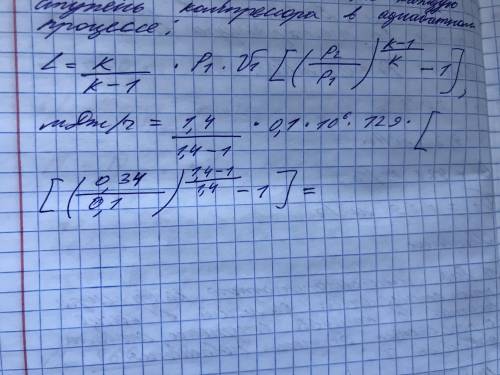 ступень компрессора в адиабатном
процессе:
L = k/(k-1) · P₁ · V₁ [(P₂/P₁)^((k-1)/k) - 1],
мдж/ч = 1,4/(1,4-1) · 0,1 · 10⁶ · 129 · [
[(0,34/0,1)^((1,4-1)/1,4) - 1] =